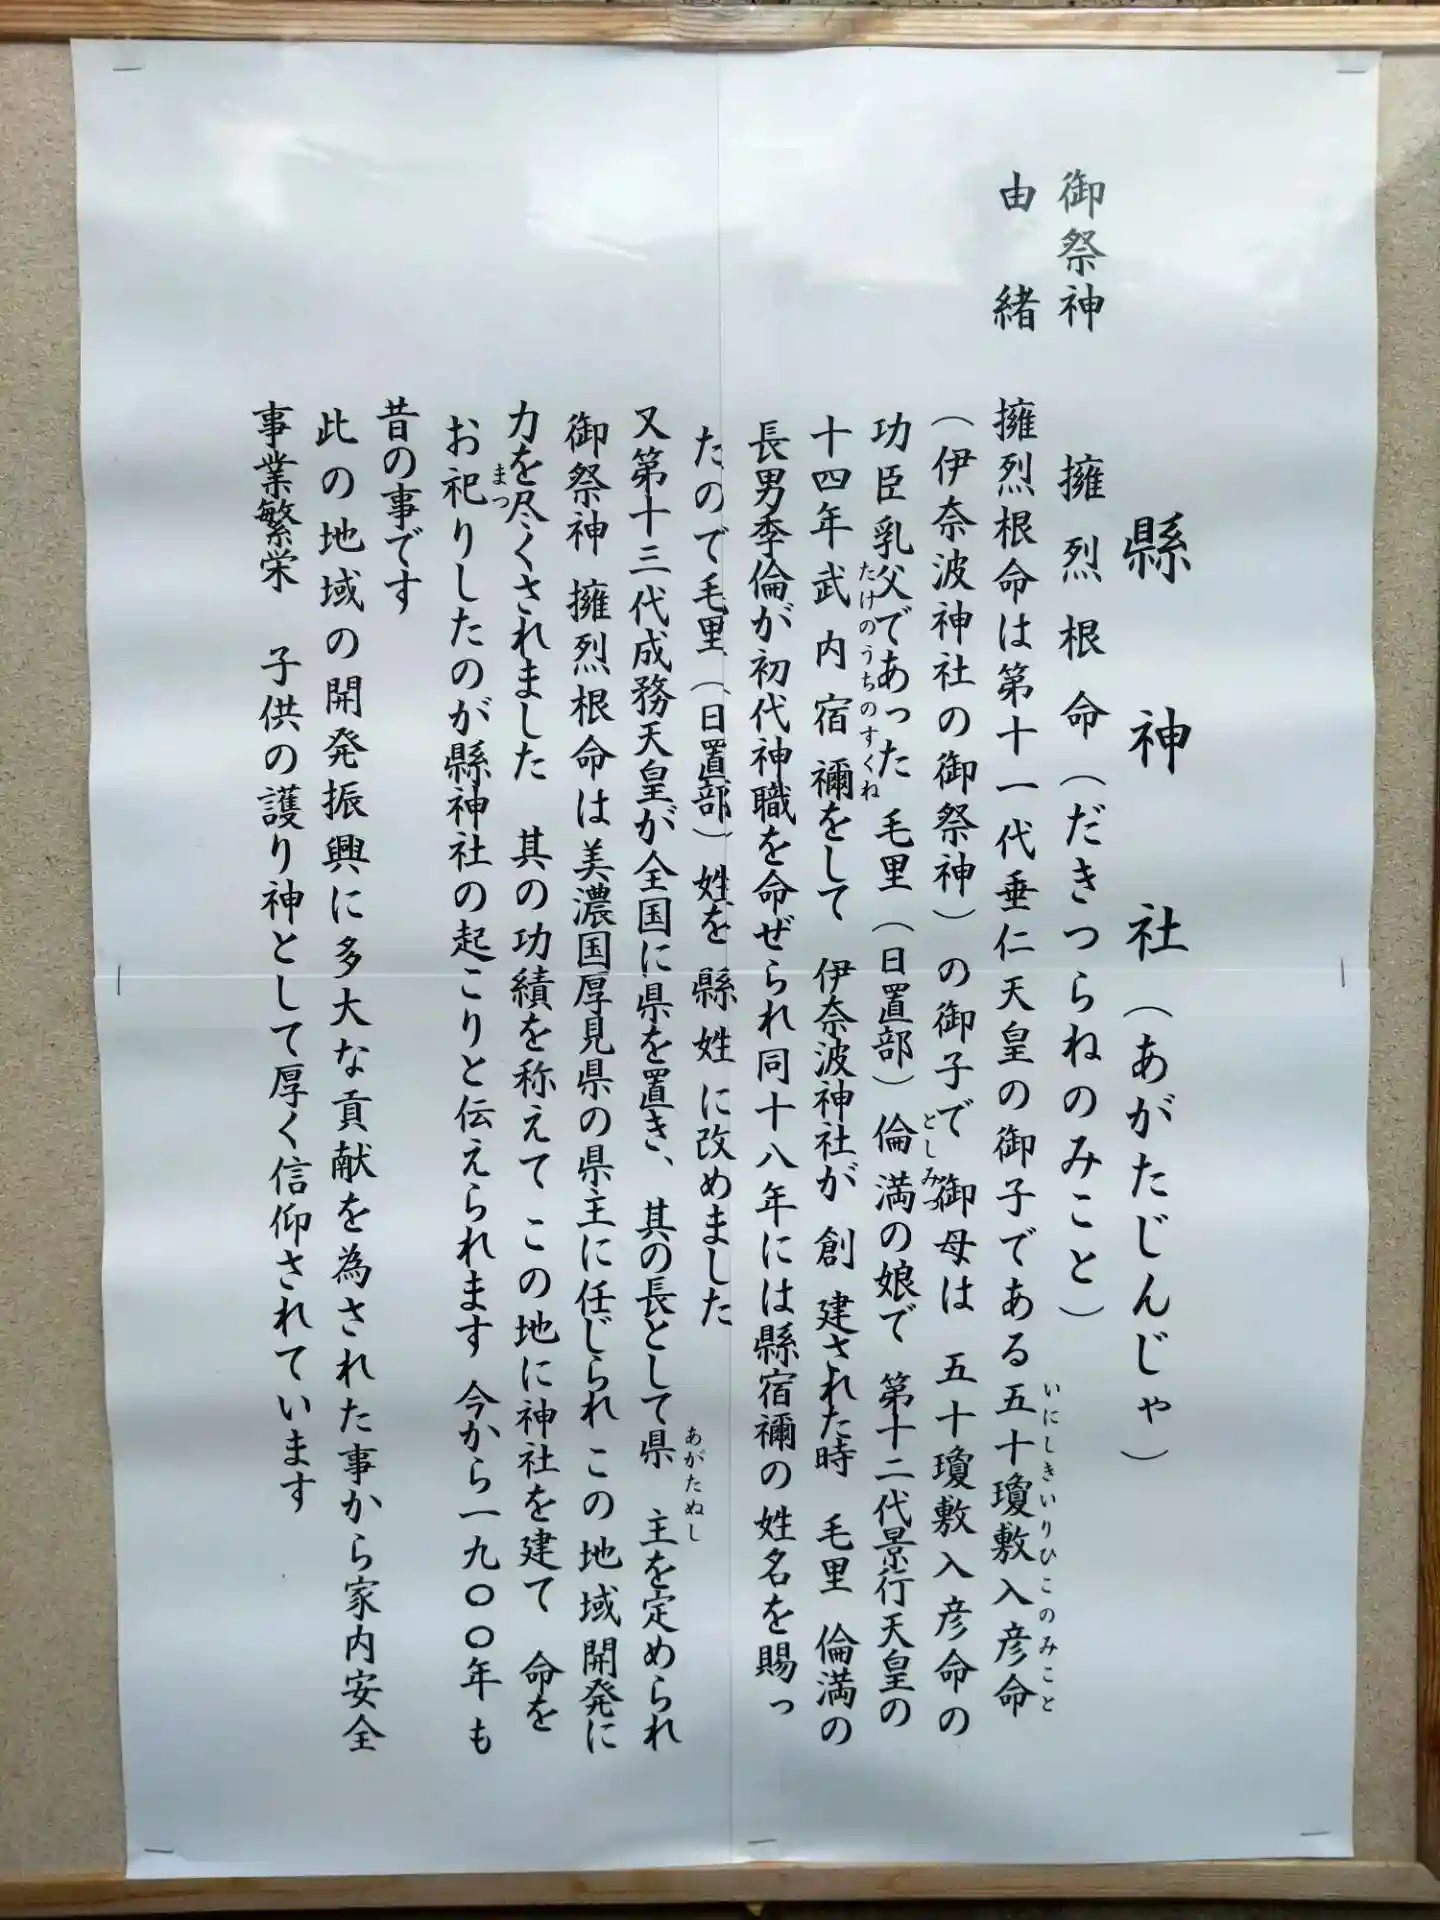 縣神社(あがたじんじゃ)
御祭神 擁烈根命(だきつらねのみこと)
由緒 擁烈根命は第十一代垂仁天皇の御子である五十瓊敷入彦命
いにしきいりひこのみこと
(伊奈波神社の御祭神)の御子で御母は 五十瓊敷入彦命の
功臣乳父であった 毛里(日置部)倫満の娘で 第十二代景行天皇の
としみつ
十四年武内宿禰をして 伊奈波神社が 創建された時 毛里 倫満の
たけのうちのすくね
長男季倫が初代神職を命ぜられ同十八年には縣宿禰の姓名を賜っ
たので毛里(日置部)姓を 縣姓に改めました
又第十三代成務天皇が全国に県を置き、其の長として県主を定められ
あがたぬし
御祭神 擁烈根命は美濃国厚見県の県主に任じられ この地域開発に
力を尽くされました 其の功績を称えて この地に神社を建て 命を
お祀りしたのが縣神社の起こりと伝えられます 今から一九〇〇年も
まつ
昔の事です
此の地域の開発振興に多大な貢献を為された事から家内安全
事業繁栄 子供の護り神として厚く信仰されています